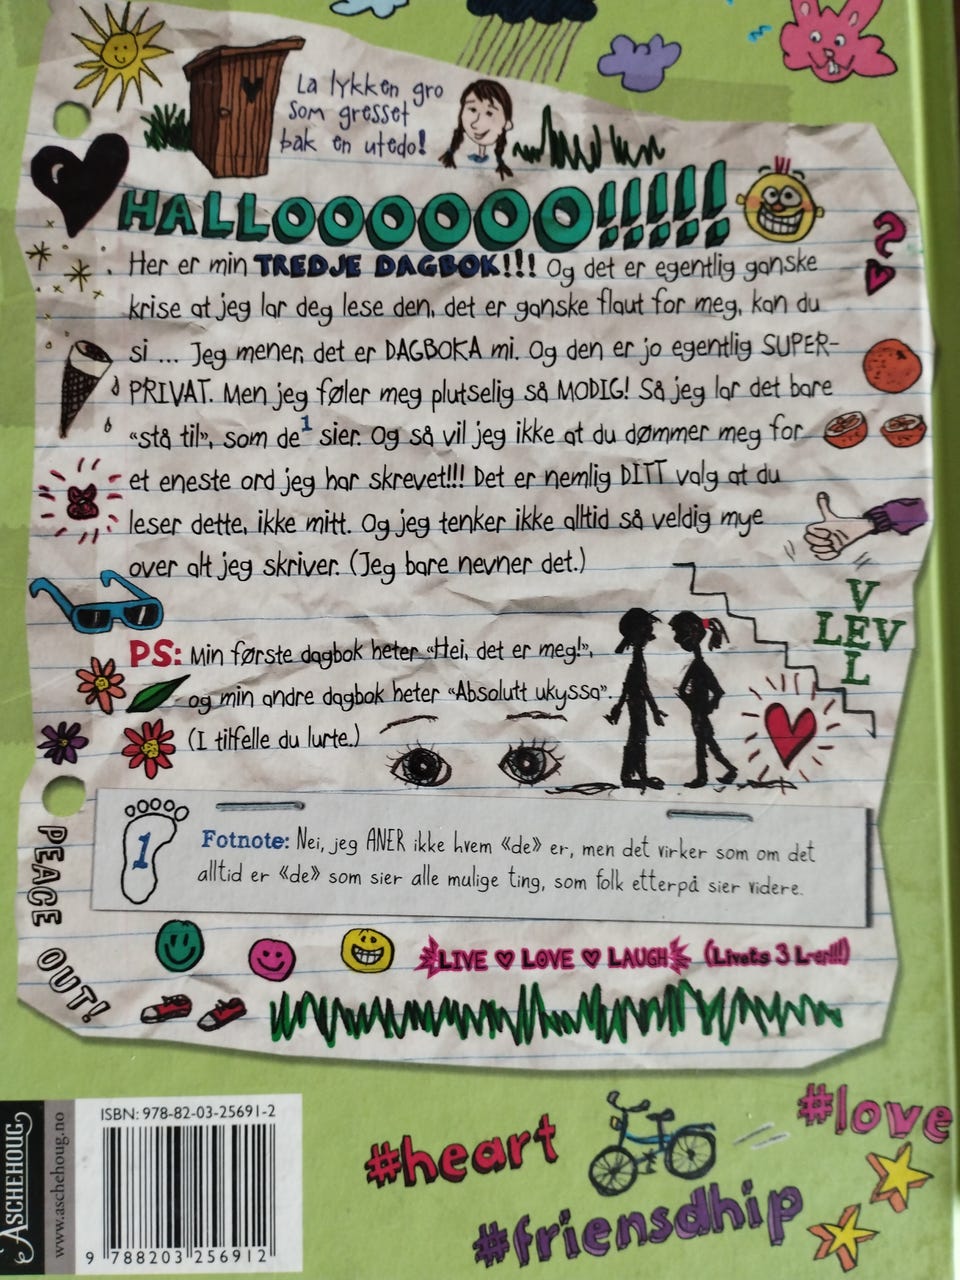 La lykken gro
som gresset
bak en utedo!
HALLOOOOOO!!!!!
Her er min TREDJE DAGBOK!!! Og det er egentlig ganske
krise at jeg lar deg lese den, det er ganske flaut for meg, kan du
si ... Jeg mener, det er DAGBOKA mi. Og den er jo egentlig SUPER-
PRIVAT. Men jeg føler meg plutselig så MODIG! Så jeg lar det bare
«stå til», som de1 sier. Og så vil jeg ikke at du dømmer meg for
et eneste ord jeg har skrevet!!! Det er nemlig DITT valg at du
leser dette, ikke mitt. Og jeg tenker ikke alltid så veldig mye
over alt jeg skriver. (Jeg bare nevner det.)
V
LEV
L
PS: Min første dagbok heter «Hei, det er meg!»,
og min andre dagbok heter «Absolutt ukyssa».
(I tilfelle du lurte.)
1
Fotnote: Nei, jeg ANER ikke hvem «de» er, men det virker som om det
alltid er «de» som sier alle mulige ting, som folk etterpå sier videre.
PEACE OUT!
LIVE ♡ LOVE ♡ LAUGH (Livets 3 L-er!!!)
ASCHEHOUG
www.aschehoug.no
ISBN: 978-82-03-25691-2
9 788203 256912
#heart
#love
#friensdhip